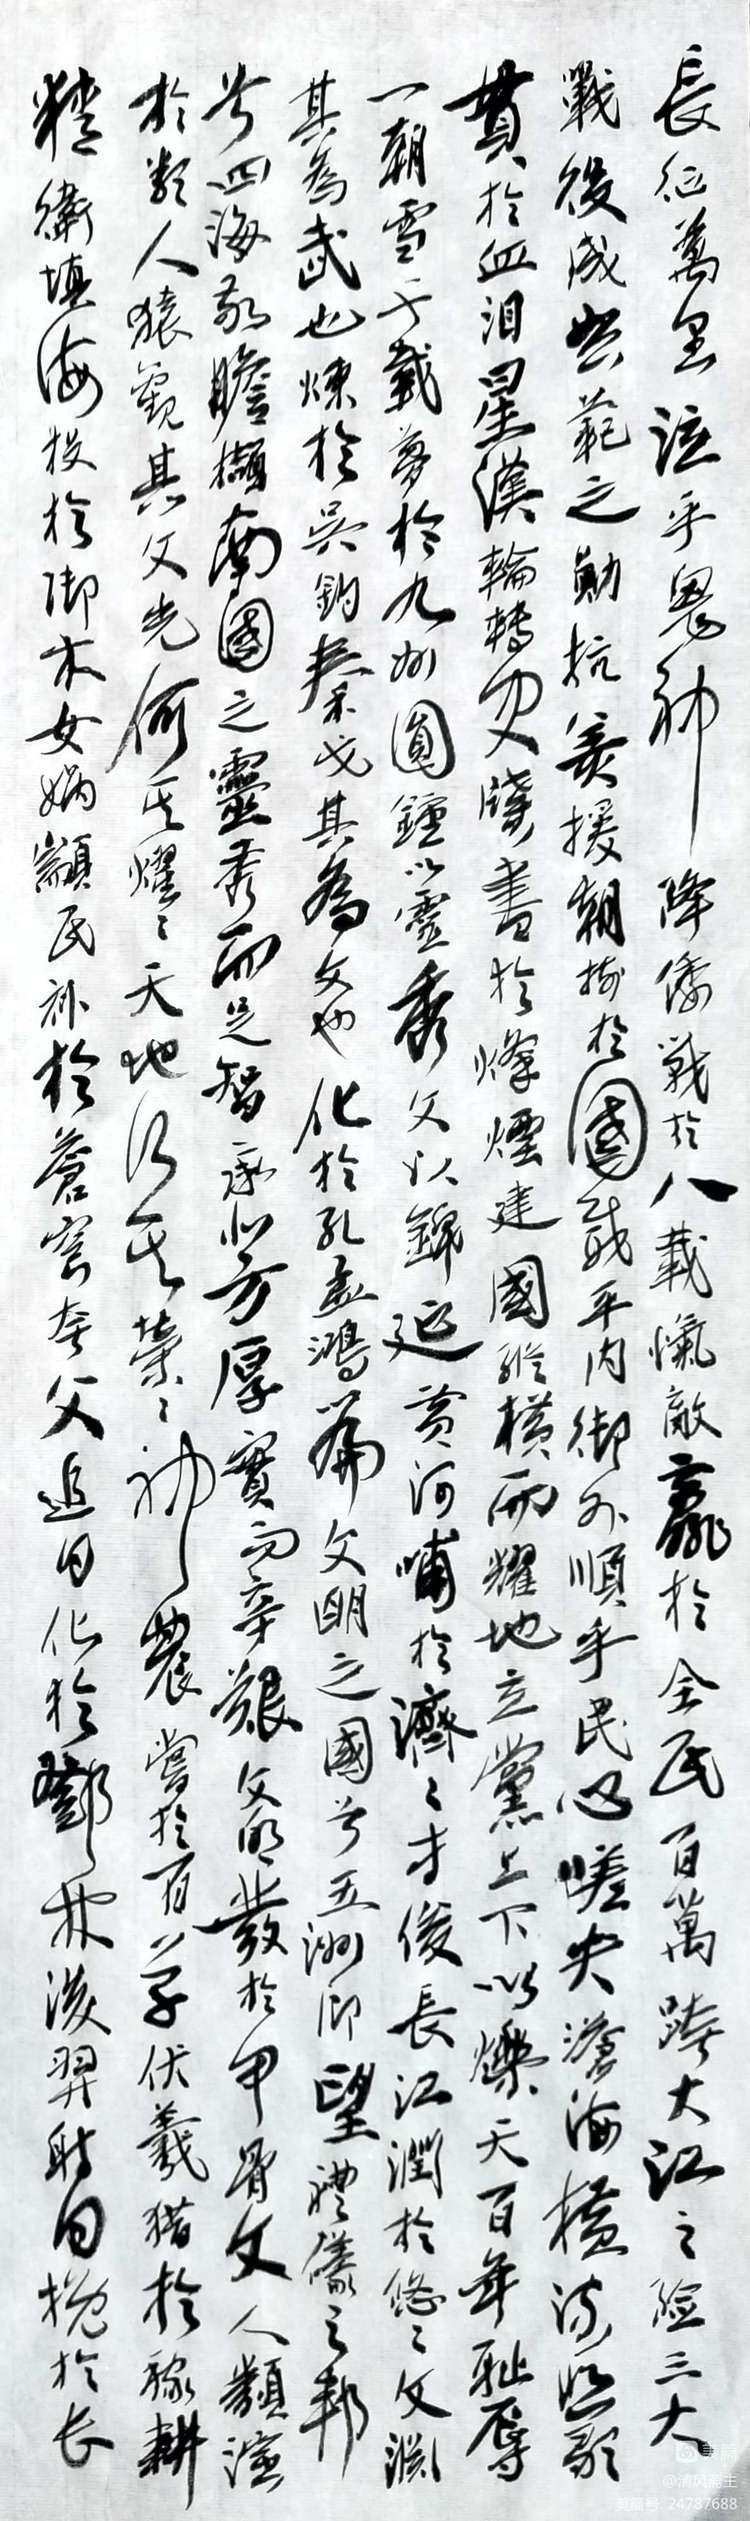 長征萬里泣乎鬼神降倭戰於八載愾敵贏於全民百萬跨大江之險三大
戰役成典範之勛抗美援朝揚於國威平內御外順乎民心嗟夫滄海橫流悲歌
貫於血泪星漢輪轉史牘書於烽煙建國縱橫而耀地立黨上下以爍天百年耻辱
一朝雪千載夢於九州圓鍾以靈秀文以錦延黃河哺於濟〻才俊長江潤於悠〻文淵
其為武也煉於吳鈎秦戈其為文也化於孔孟鴻篇文明之國兮五洲仰望禮儀之邦
兮四海敬瞻擷南國之靈秀而足智承北方厚實而辛艱文明發於甲骨文人類演
於類人猿觀其文光何其耀〻天地何其榮〻神農嘗於百草伏羲猎於稼耕
精衛填海投於御木女媧顓民補於蒼穹夸父追日化於鄧林後羿射日挽於长
美篇
@清风斋主
美篇号: 24787688